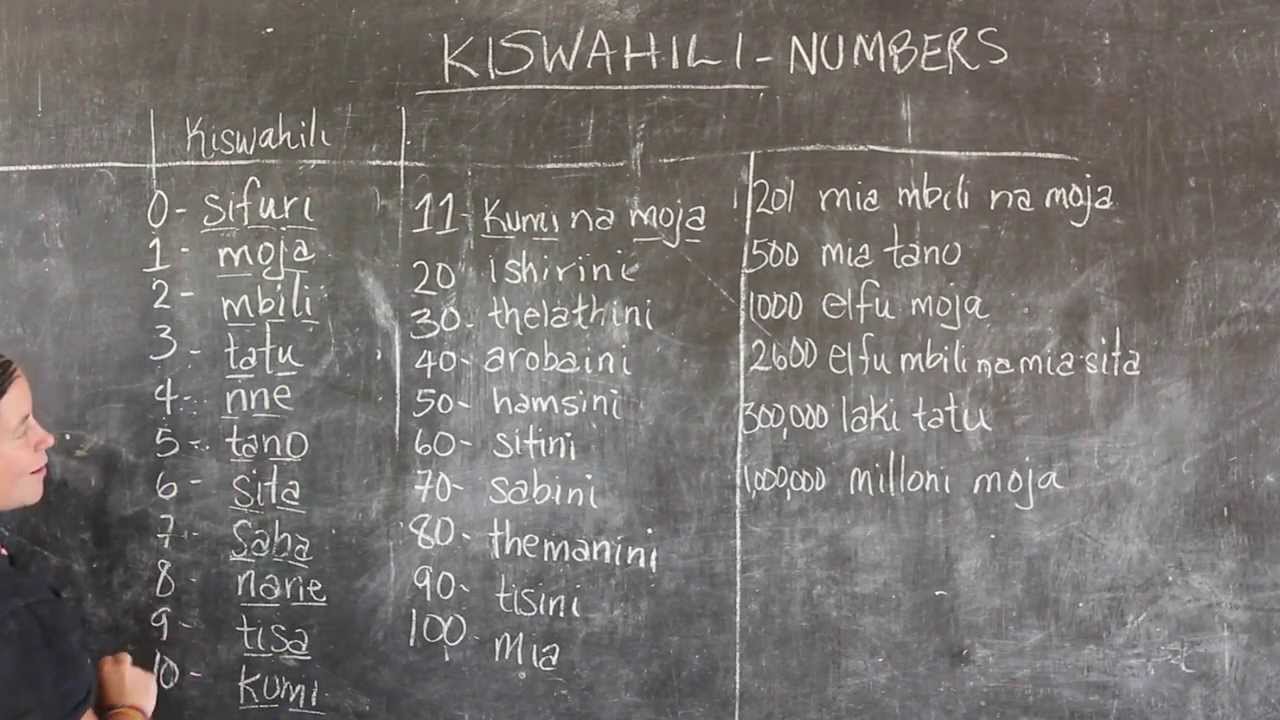 KISWAHILI - NUMBERS
Kiswahili
0 - sifuri
1 - moja
2 - mbili
3 - tatu
4 - nne
5 - tano
6 - sita
7 - saba
8 - nane
9 - tisa
10 - kumi
11 - Kumi na moja
20 ishirini
30 - thelathini
40 - arobaini
50 - hamsini
60 - sitini
70 - sabini
80 - themanini
90 - tisini
100 - Mia
201 mia mbili na moja
500 mia tano
1000 elfu moja
2600 elfu mbili na mia sita
300,000 laki tatu
1,000,000 milloni moja